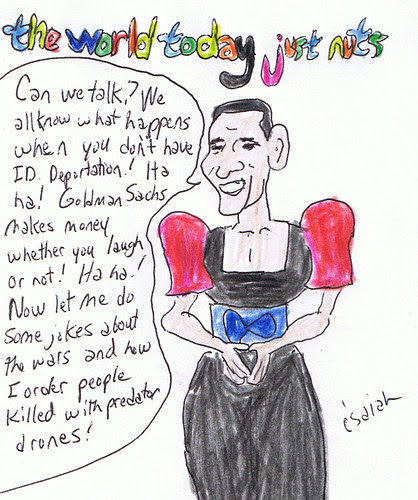 the world today just nuts
Can we talk? We
all know what happens
when you don't have
ID. Deportation! Ha
ha! Goldman Sachs
makes money
whether you laugh
or not! Ha ha!
Now let me do
some jokes about
the wars and how
I order people
killed with predator
drones!
isaiah